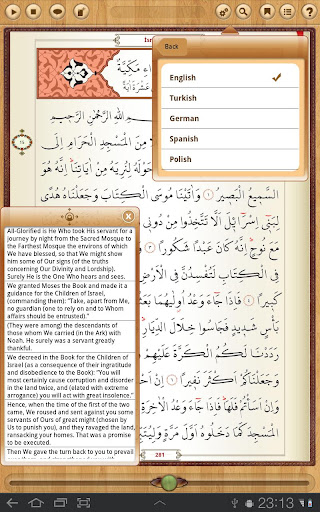 Isr
Back
English
Turkish
German
Spanish
Polish
مَكِّيَّةٌ
اللّٰهِ الرَّحْمٰنِ الرَّحِيمِ
مِنَ الْمَسْجِدِ الْحَرَامِ اِلَى
حَوْلَهُ لِنُرِيَهُ مِنْ اٰيَاتِنَا اِنَّهُ هُوَ
السَّمِيعُ الْبَصِيرُ ١ وَاٰتَيْنَا مُوسَى الْكِتَابَ وَجَعَلْنَاهُ هُدًى
لِبَنِى اِسْرَٓائِلَ اَلَّا تَتَّخِذُوا مِنْ دُونِى
مَعَ نُوحٍ اِنَّهُ كَانَ عَبْدًا شَكُورًا ٣
فِى الْكِتَابِ لَتُفْسِدُنَّ فِى الْاَرْضِ
كَبِيرًا ٤ فَاِذَا جَٓاءَ وَعْدُ اُولٰيهُمَا
بَاْسٍ شَدِيدٍ فَجَاسُوا خِلَالَ الدِّيَارِ
رَدَدْنَا لَكُمُ الْكَرَّةَ عَلَيْهِمْ
وَجَعَلْنَاكُمْ اَكْثَرَ نَفِيرًا ٦
وَاِنْ اَسَاْتُمْ فَلَهَا فَاِذَا جَٓاءَ وَعْدُ
الْمَسْجِدَ كَمَا دَخَلُوهُ اَوَّلَ مَرَّةٍ
281
All-Glorified is He Who took His servant for a
journey by night from the Sacred Mosque to
the Farthest Mosque the environs of which
We have blessed, so that We might show
him some of Our signs (of the truths
concerning Our Divinity and Lordship).
Surely He is the One Who hears and sees.
We granted Moses the Book and made it a
guidance for the Children of Israel,
(commanding them): "Take, apart from Me,
no guardian (one to rely on and to Whom
affairs should be entrusted)."
(They were among) the descendants of
those whom We carried (in the Ark) with
Noah. He surely was a servant greatly
thankful.
We decreed in the Book for the Children of
Israel (as a consequence of their ingratitude
and disobedience to the Book): "You will
most certainly cause corruption and disorder
in the land twice, and (elated with extreme
arrogance) you will act with great insolence."
Hence, when the time of the first of the two
came, We roused and sent against you some
servants of Ours of great might (chosen by
Us to punish you), and they ravaged the land,
ransacking your homes. That was a promise
to be executed.
Then We gave the turn back to you to prevail
23:13